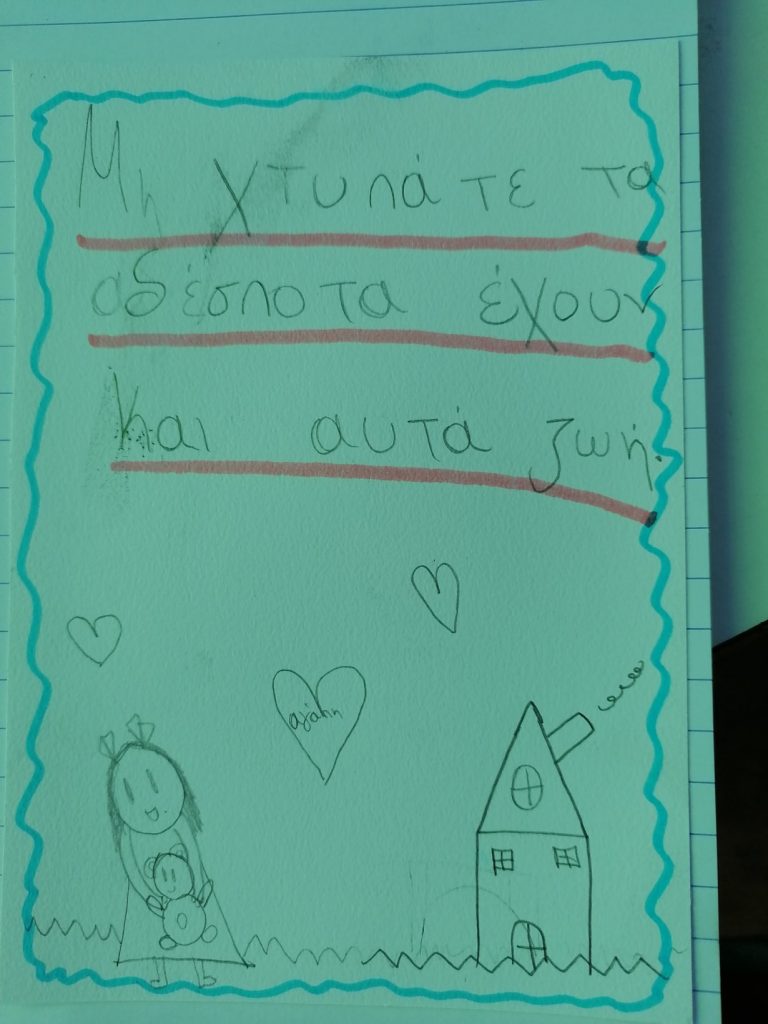 Μη χτυπάτε τα
αδέσποτα έχουν
και αυτά ζωή.
αγάπη